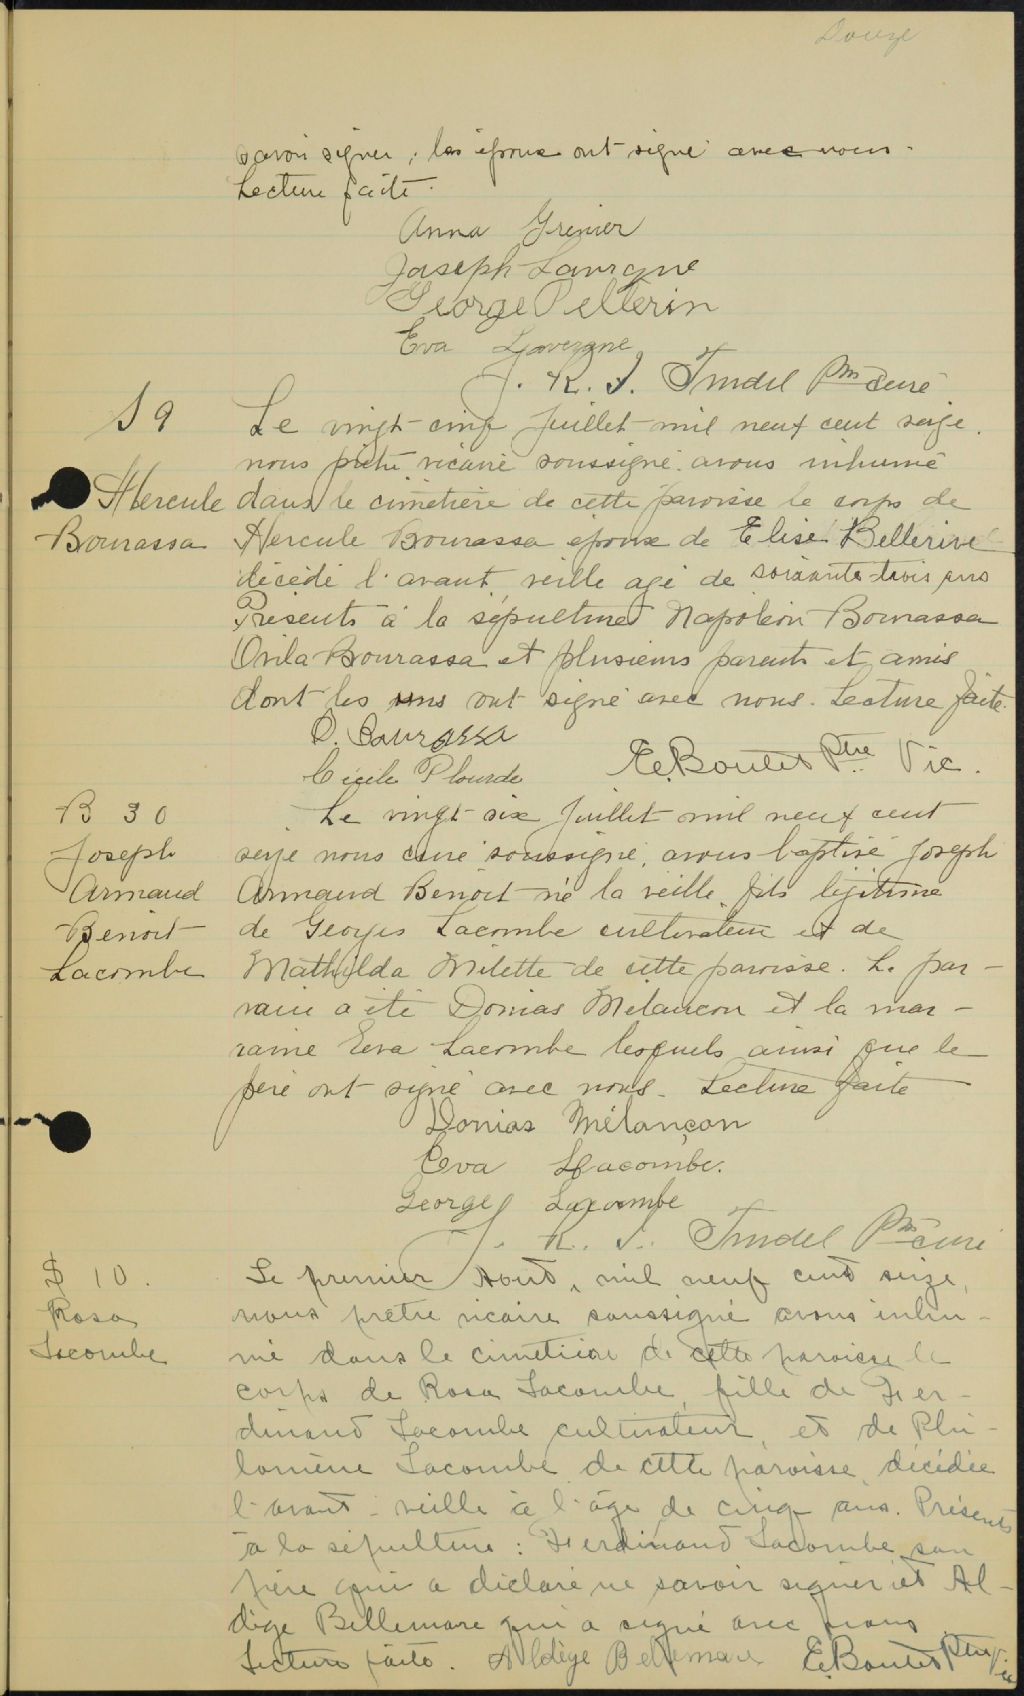 Douze
savoir signer, les époux ont signé avec nous.
Lecture faite.
Anna Grenier
Joseph Lavigne
George Pellerin
Eva Lavergne
J. R. I. Trudel Ptre Curé
S 9
Le vingt-cinq Juillet mil neuf cent seize
nous prêtre vicaire soussigné avons inhumé
Hercule
dans le cimetière de cette paroisse le corps de
Bourassa
Hercule Bourassa époux de Elise Bellerive
décédé l'avant veille agé de soixante-trois ans
Présents à la sépulture Napoléon Bourassa
Ovila Bourassa et plusieurs parents et amis
dont les uns ont signé avec nous. Lecture faite.
O. Bourassa
Cécile Plourde
E. Boutet Ptre Vic.
B 30
Le vingt-six Juillet mil neuf cent
Joseph
seize nous curé soussigné, avons baptisé Joseph
Armand
Armand Benoit né la veille, fils légitime
Benoit
de Georges Lacombe cultivateur et de
Lacombe
Mathilda Milette de cette paroisse. Le par-
rain a été Donias Mélancon et la mar-
raine Eva Lacombe lesquels ainsi que le
père ont signé avec nous. Lecture faite
Donias Mélançon
Eva Lacombe.
George Lacombe
J. R. I. Trudel Ptre curé
S 10.
Le premier Août, mil neuf cent seize,
Rosa
nous prêtre vicaire soussigné avons inhu-
Lacombe
mé dans le cimetière de cette paroisse le
corps de Rosa Lacombe, fille de Fer-
dinand Lacombe cultivateur, et de Phi-
lomène Lacombe de cette paroisse, décédée
l'avant-veille à l'âge de cinq ans. Présents
à la sépulture : Ferdinand Lacombe son
père qui a déclaré ne savoir signer et Al-
dège Bellemare qui a signé avec nous
Lecture faite. Aldège Bellemare E. Boutet Ptre Vic